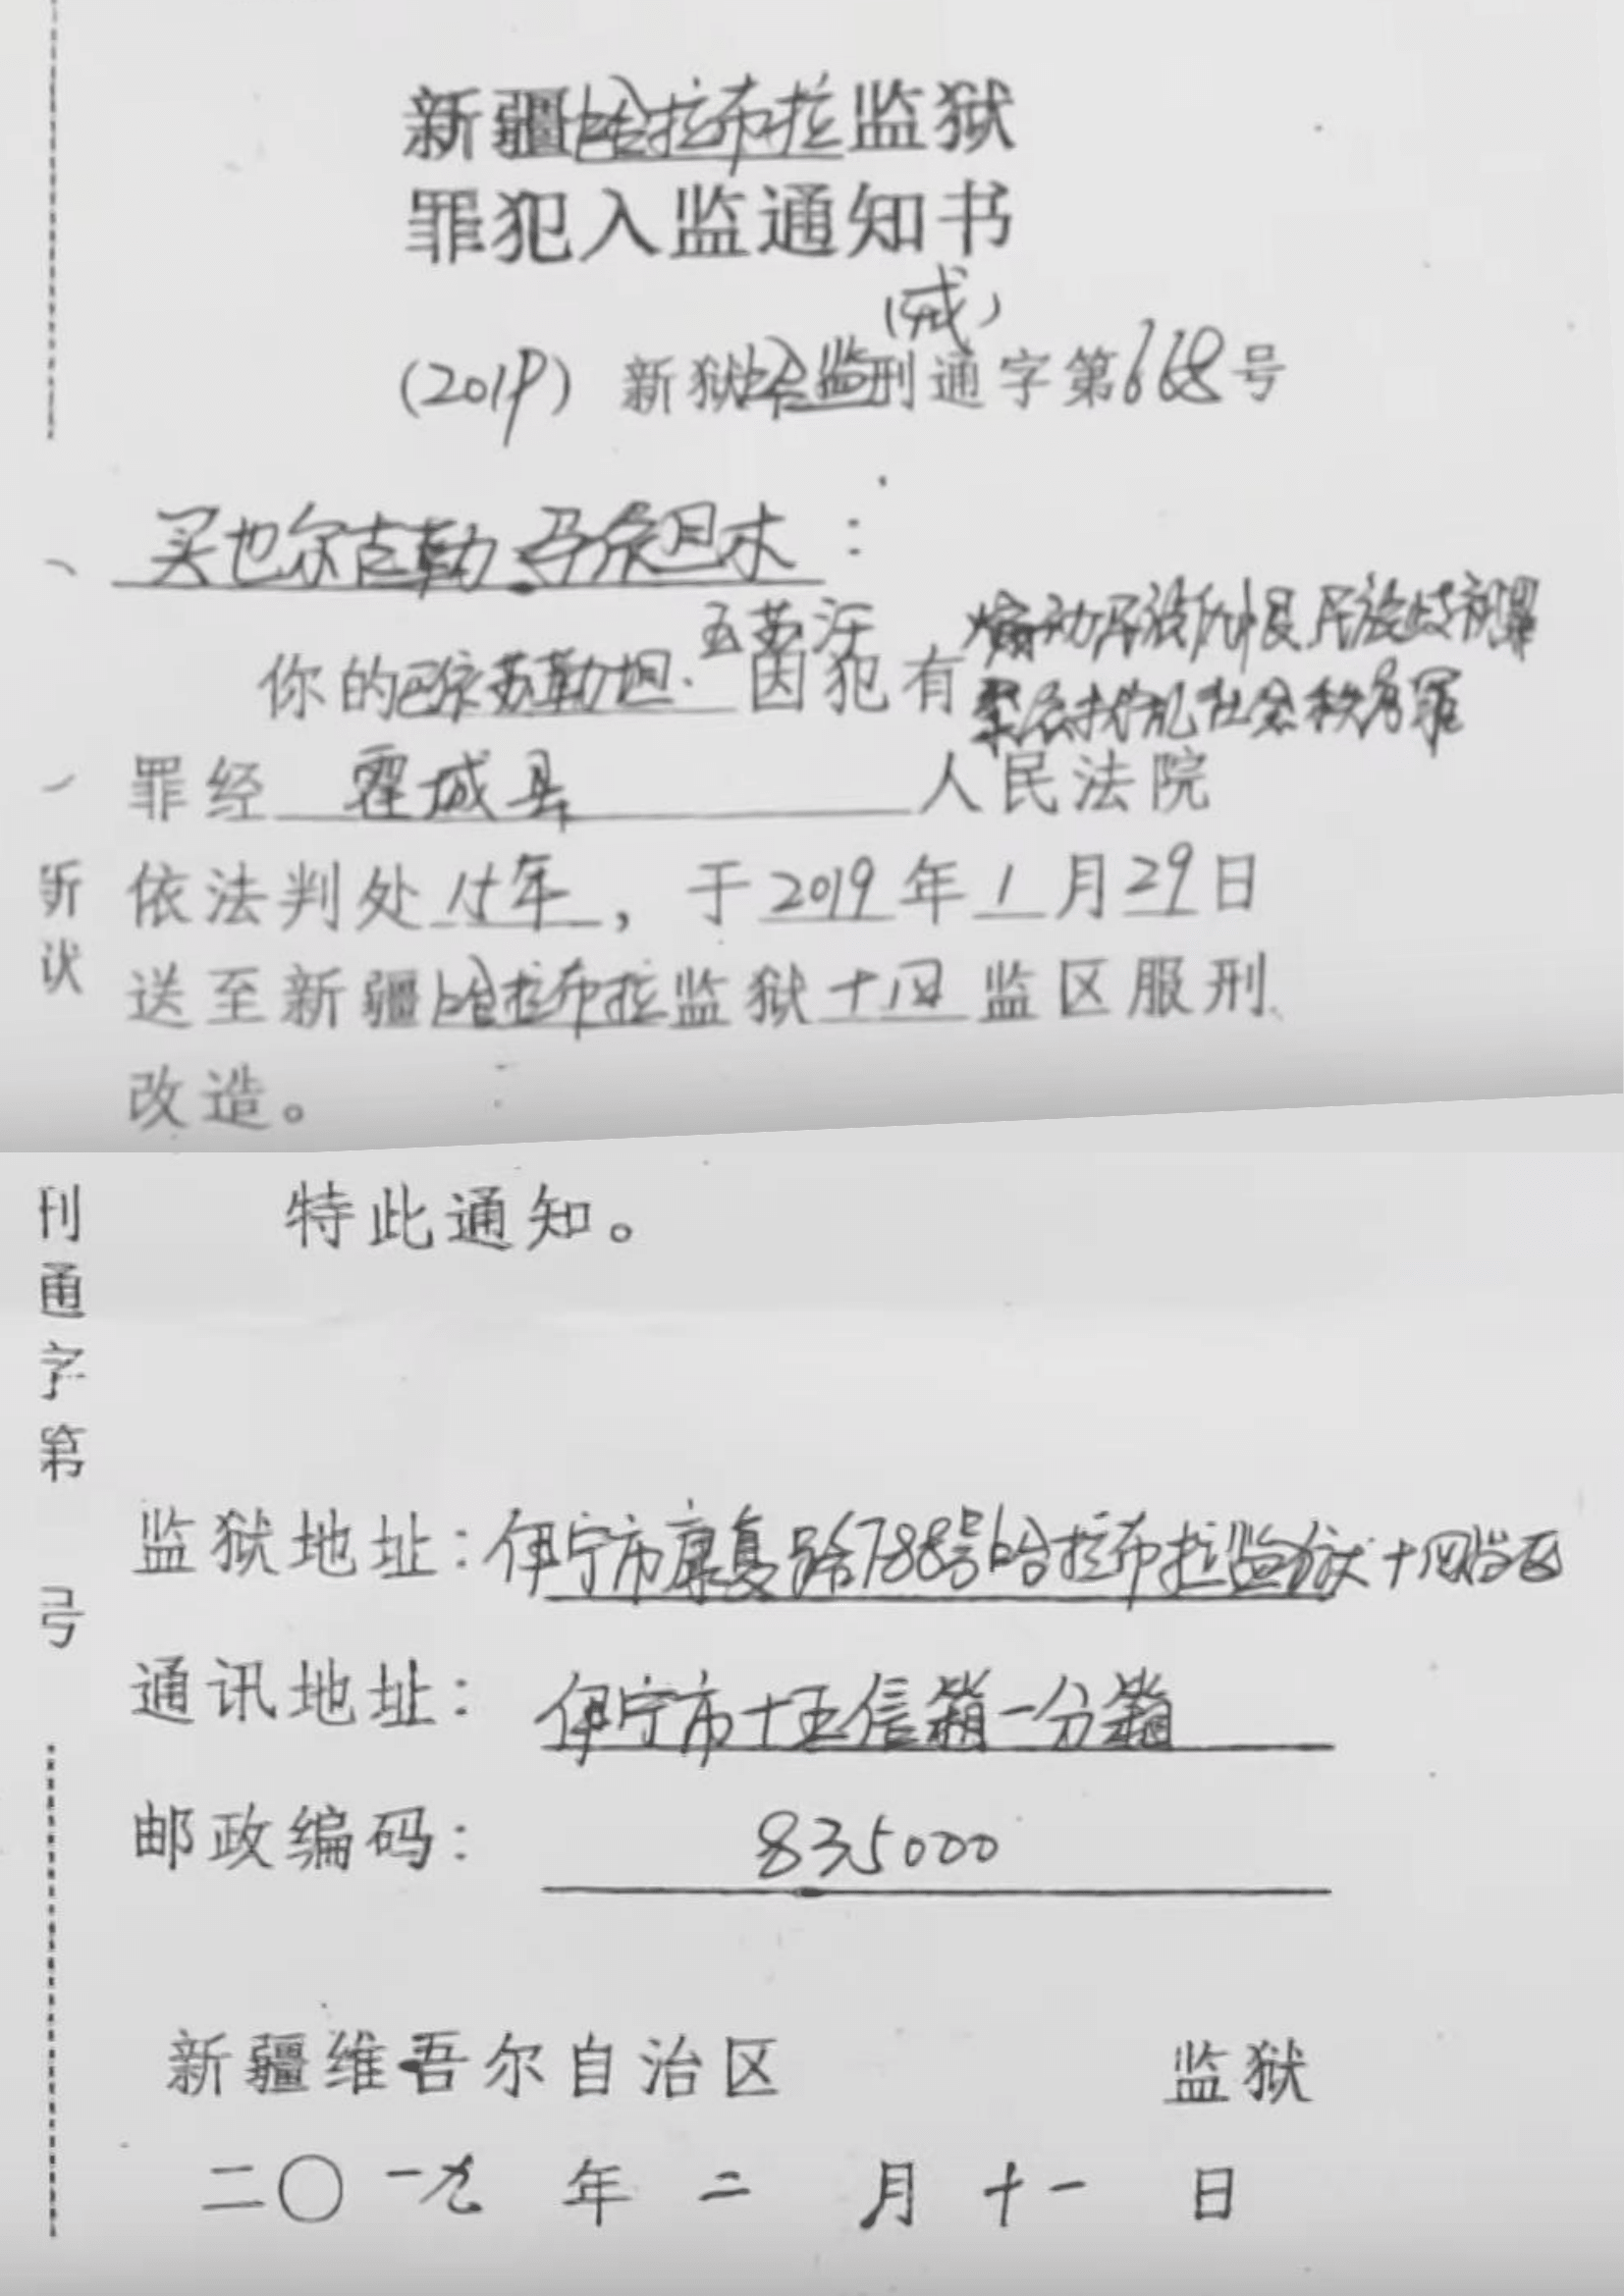 新疆哈拉布拉监狱
罪犯入监通知书
(戒)
(2019) 新狱哈监刑通字第668号
买也尔古勒.马合旦木:
五苏汗 煽动民族仇恨民族歧视罪
你的巴依苏勒坦. 因犯有 聚众扰乱社会秩序罪
罪经 霍城县 人民法院
依法判处 15年, 于 2019 年 1 月 29 日
送至新疆哈拉布拉监狱 十四 监区服刑
改造。
特此通知。
监狱地址:伊宁市康复路788号哈拉布拉监狱十四监区
通讯地址: 伊宁市十五信箱一分箱
邮政编码: 835000
新疆维吾尔自治区 监狱
二〇一九 年 二 月 十一 日
刑通字第 号